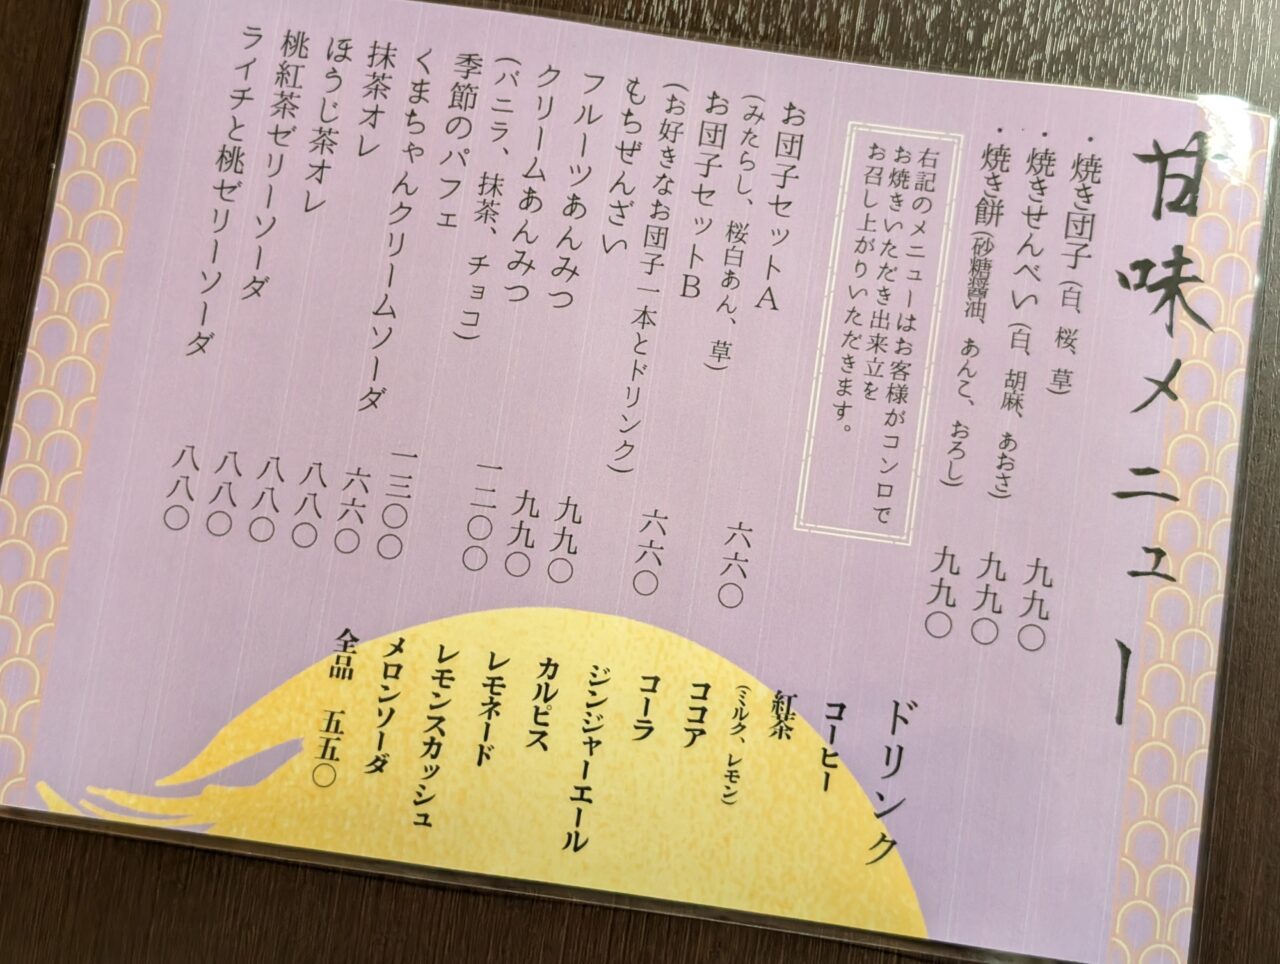 甘味メニュー
・焼き団子(白、桜、草) 九九〇
・焼きせんべい(白、胡麻、あおさ) 九九〇
・焼き餅(砂糖醤油、あんこ、おろし) 九九〇
右記のメニューはお客様がコンロで
お焼きいただき出来立を
お召し上がりいただきます。
お団子セットA 六六〇
(みたらし、桜白あん、草)
お団子セットB 六六〇
(お好きなお団子一本とドリンク)
もちぜんざい 九九〇
フルーツあんみつ 九九〇
クリームあんみつ 一二〇〇
(バニラ、抹茶、チョコ)
季節のパフェ 一三〇〇
くまちゃんクリームソーダ 六六〇
抹茶オレ 八八〇
ほうじ茶オレ 八八〇
桃紅茶ゼリーソーダ 八八〇
ライチと桃ゼリーソーダ 八八〇
ドリンク
コーヒー
紅茶
(ミルク、レモン)
ココア
コーラ
ジンジャーエール
カルピス
レモネード
レモンスカッシュ
メロンソーダ
全品 五五〇